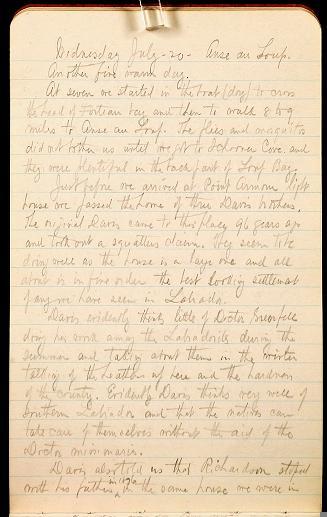 Wednesday July - 20 - Anse au Loup.
Another fine warm day.
At seven we started in the boat (dory) to cross
the head of Forteau Bay and then to walk 8 to 9
miles to Anse au Loup. The flies and mosquitos
did not bother us until we got to Schooner Cove and
they were plentiful in the back part of Loup Bay.
Just before we arrived at Point Amour light
house we passed the home of three Davis brothers.
The original Davis came to this place 96 years ago
and took out a squatters claim. They seem to be
doing well as the house is a large one and all
about is in fine order. the best looking settlement
of any we have seen in Labrador.
Davis evidently thinks little of Doctor Grenfell
doing his work among the Labradorites during the
summer and talking about them in the winter
telling of the habits up here and the hardness
of the country. Evidently Davis thinks very well of
Southern Labrador and that the natives can
take care of themselves without the aid of the
Doctor missionaries.
Davis also told us that Richardson stopped
with his father in 1912 in the same house we were in